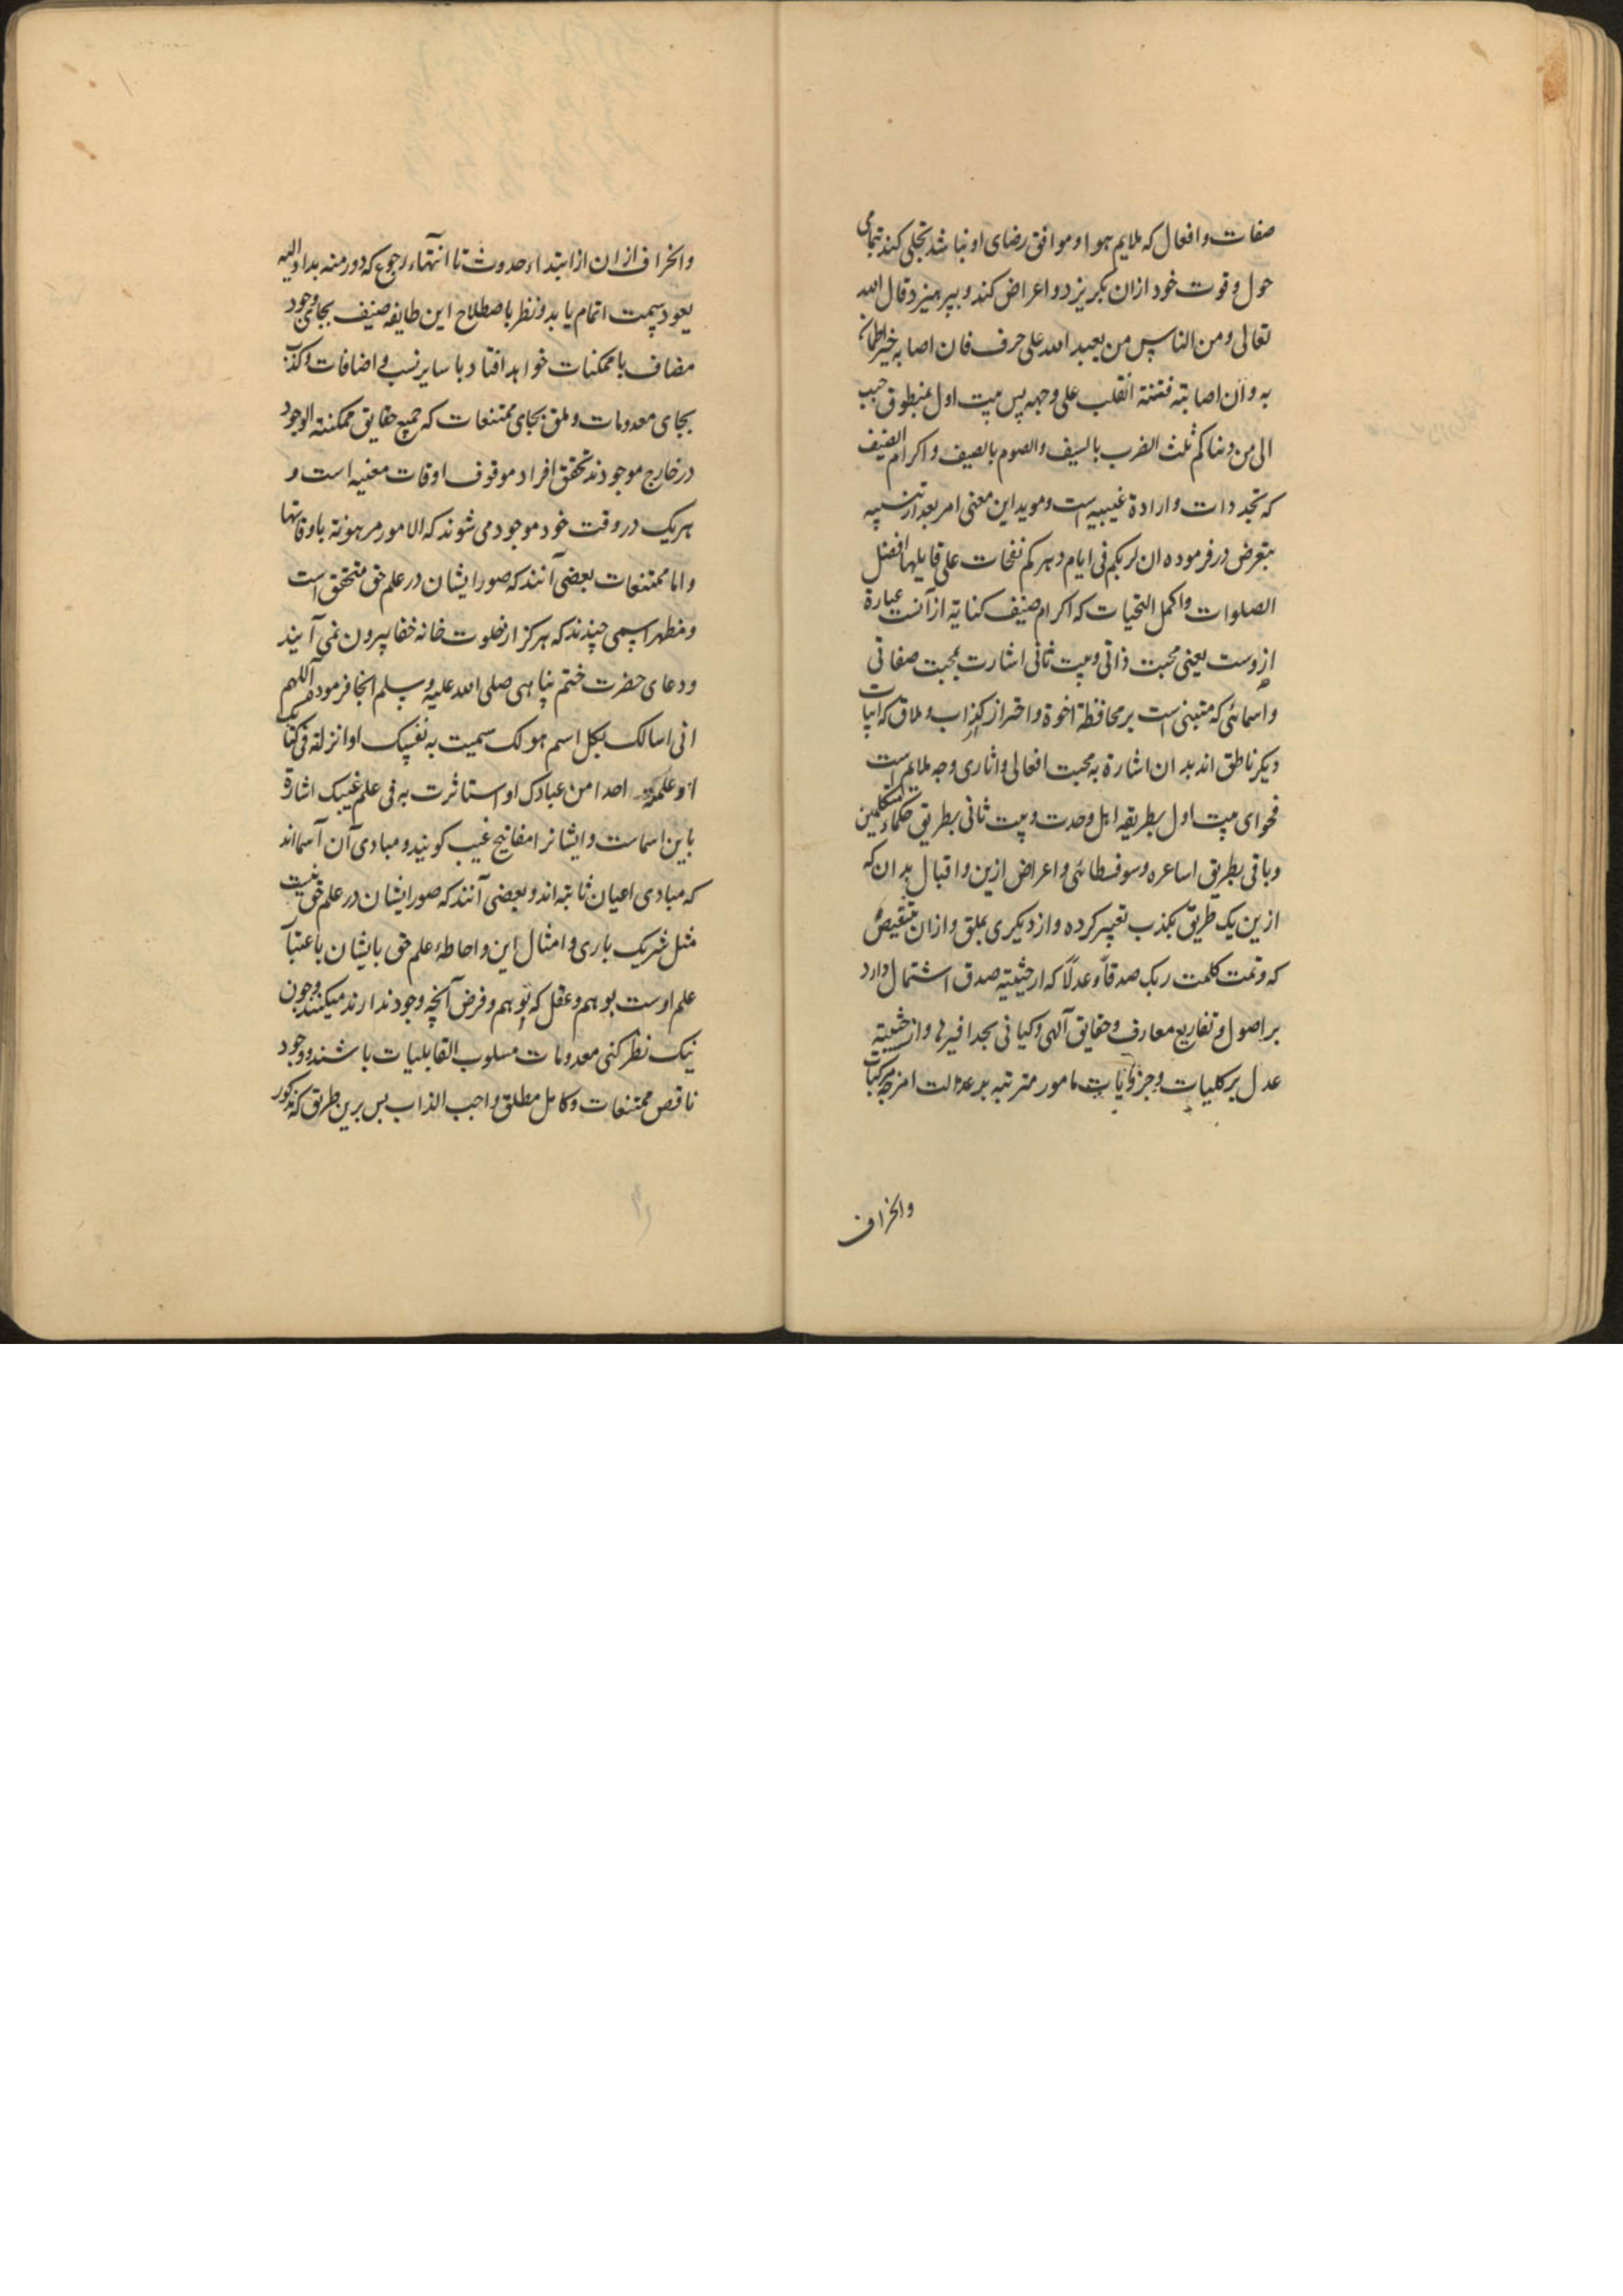 صفات و افعال که ملایم هوا و موافق رضای او نباشد تجلی کند بتمامی
حول و قوت خود ازان بکریزد و اعراض کند و بپرهیزد قال الله
تعالی و من الناس من یعبد الله علی حرف فان اصابه خیر اطمان
به و ان اصابته فتنة انقلب علی وجهه پس بیت اول بمنطوق حبب
الی من دنیاکم ثلث الضرب بالسیف و الصوم بالصیف و اکرام الضیف
که تجدد ذات و ارادة غیبیه است و موید این معنی امر بعد از تنبیه
بتعرض در فرموده ان لربکم فی ایام دهرکم نفحات علی قایلها افضل
الصلوات و اکمل التحیات که اکرام ضیف کنایة از آنست عبارة
ازوست یعنی محبت ذاتی و بیت ثانی اشارت بمحبت صفاتی
و اسمائی که متبنی است بر محافظة اخوة و احتراز کذاب و ملاق که ابیات
دیکر ناطق اند بدان اشارة به محبت افعالی و اثاری وجه ملایم است
فحوای بیت اول بطریقه اهل وحدت و بیت ثانی بطریق حکماء متکلمین
و باقی بطریق اساعره و سوفسطائی و اعراض ازین و اقبال بدان که
ازین یک طریق بکذب تعبیر کرده و از دیکری بملق و ازان
که و تمت کلمت ربک صدقاً و عدلاً که از حیثیة صدق اشتمال دارد
بر اصول و تفاریع معارف و حقایق آلهی و کیانی بحذافیرها و از حیثیة
عدل بر کلیات و جزئیات مامور مترتبه بر عدالت امزجه مرکبات
وانحراف
وانحراف ازان از ابتداء حدوث تا انتهاء رجوع که دور منه بدا و الیه
یعود سمت اتمام یابد و نظر باصطلاح این طایفه ضیف بجای وجود
مضاف با ممکنات خواهد افتاد با سایر نسب و اضافات و کذب
بجای معدومات و ملق بجای ممتنعات که جمیع حقایق ممکنة الوجود
در خارج موجودند تحقق افراد موقوف اوقات معنیه است و
هریک در وقت خود موجود می شوند که الامور مرهونة باوقاتها
و اما ممتنعات بعضی آنند که صور ایشان در علم حق متحقق است
و مظهر اسمی چندند که هرکز از خلوت خانه خفا بیرون نمی آیند
و دعای حضرت ختم پناهی صلی الله علیه و سلم انجا فرموده اللهم
انی اسالک بکل اسم هو لک سمیت به نفسک او انزلته فی کتابک
او علمته احدا من عبادک او استاثرت به فی علم غیبک اشارة
باین اسماست و ایشانرا مفاتیح غیب کویند و مبادی آن آسمااند
که مبادی اعیان ثابته اند و بعضی آنند که صور ایشان در علم حق نیست
مثل شریک باری و امثال این و احاطهٔ علم حق بایشان باعتبار
علم اوست بوهم و عقل که بوهم و فرض آنچه وجود ندارند میکنند و چون
نیک نظر کنی معدومات مسلوب القابلیات باشند و وجود
ناقص ممتنعات و کامل مطلق واجب الذاب بس برین طریق که مذکور